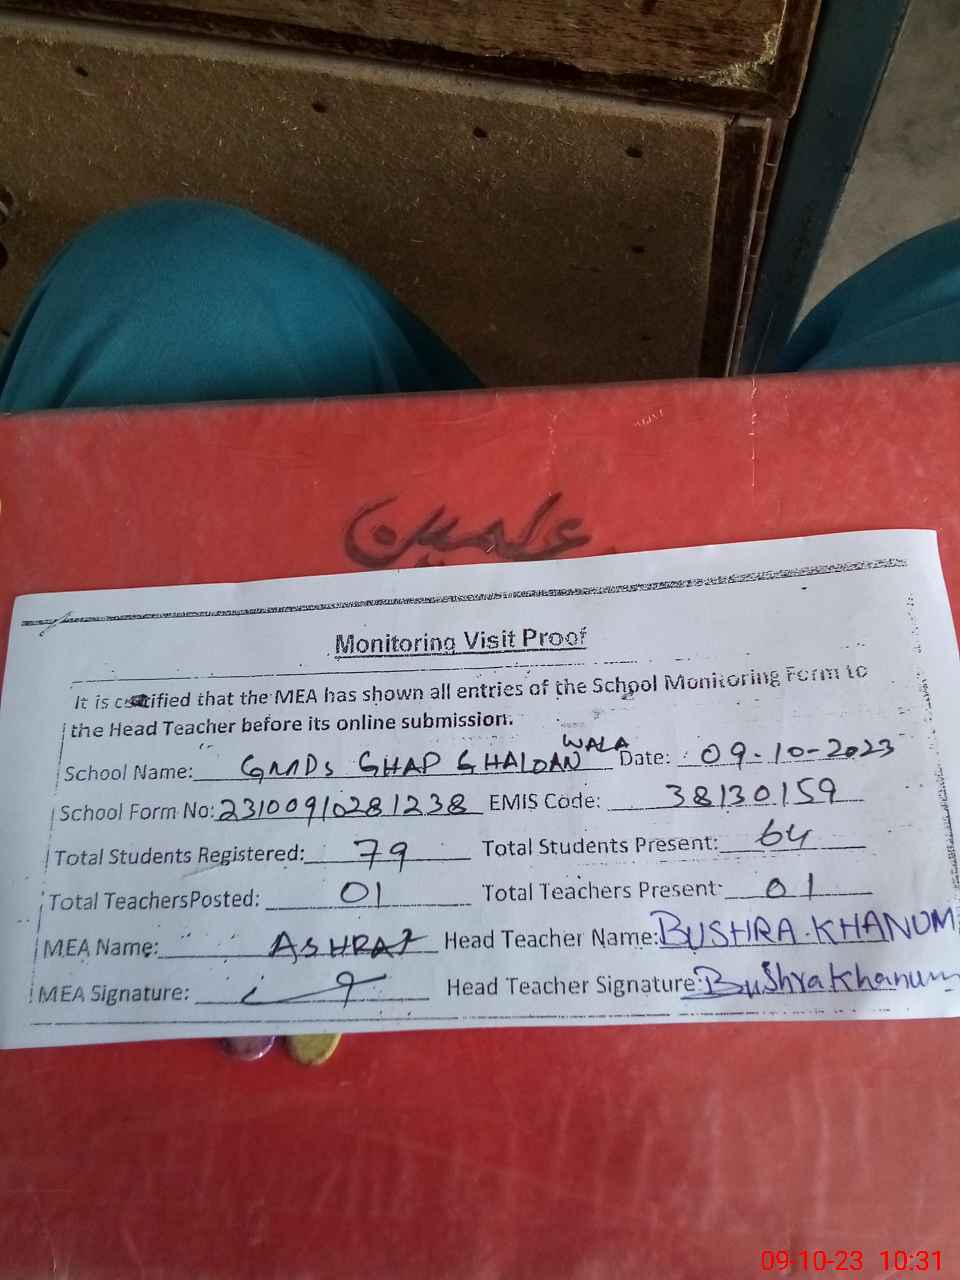 علمین
Monitoring Visit Proof
It is certified that the MEA has shown all entries of the School Monitoring Form to
the Head Teacher before its online submission.
School Name: GMPS GHAP GHALOAN WALA Date: 09-10-2023
School Form No: 23100910281238 EMIS Code: 38130159
Total Students Registered: 79 Total Students Present: 64
Total TeachersPosted: 01 Total Teachers Present: 01
MEA Name: ASHRAF Head Teacher Name: BUSHRA KHANUM
MEA Signature: Head Teacher Signature: Bushra Khanum
09-10-23 10:31